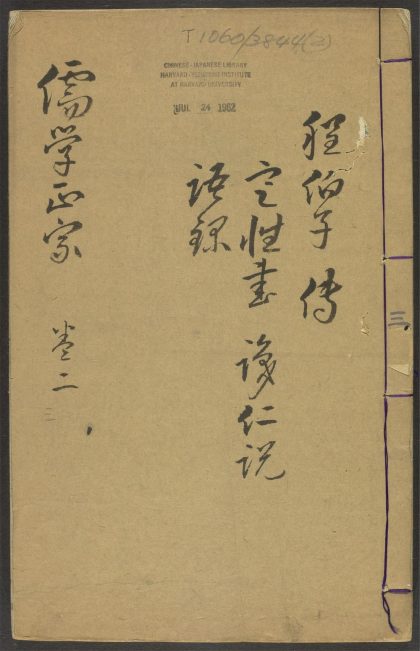 T1060/3844(2)
CHINESE-JAPANESE LIBRARY
HARVARD-YENCHING INSTITUTE
AT HARVARD UNIVERSITY
JUL 24 1962
三
程伯子 傳
定性書 識仁說
語錄
儒学正宗 卷二